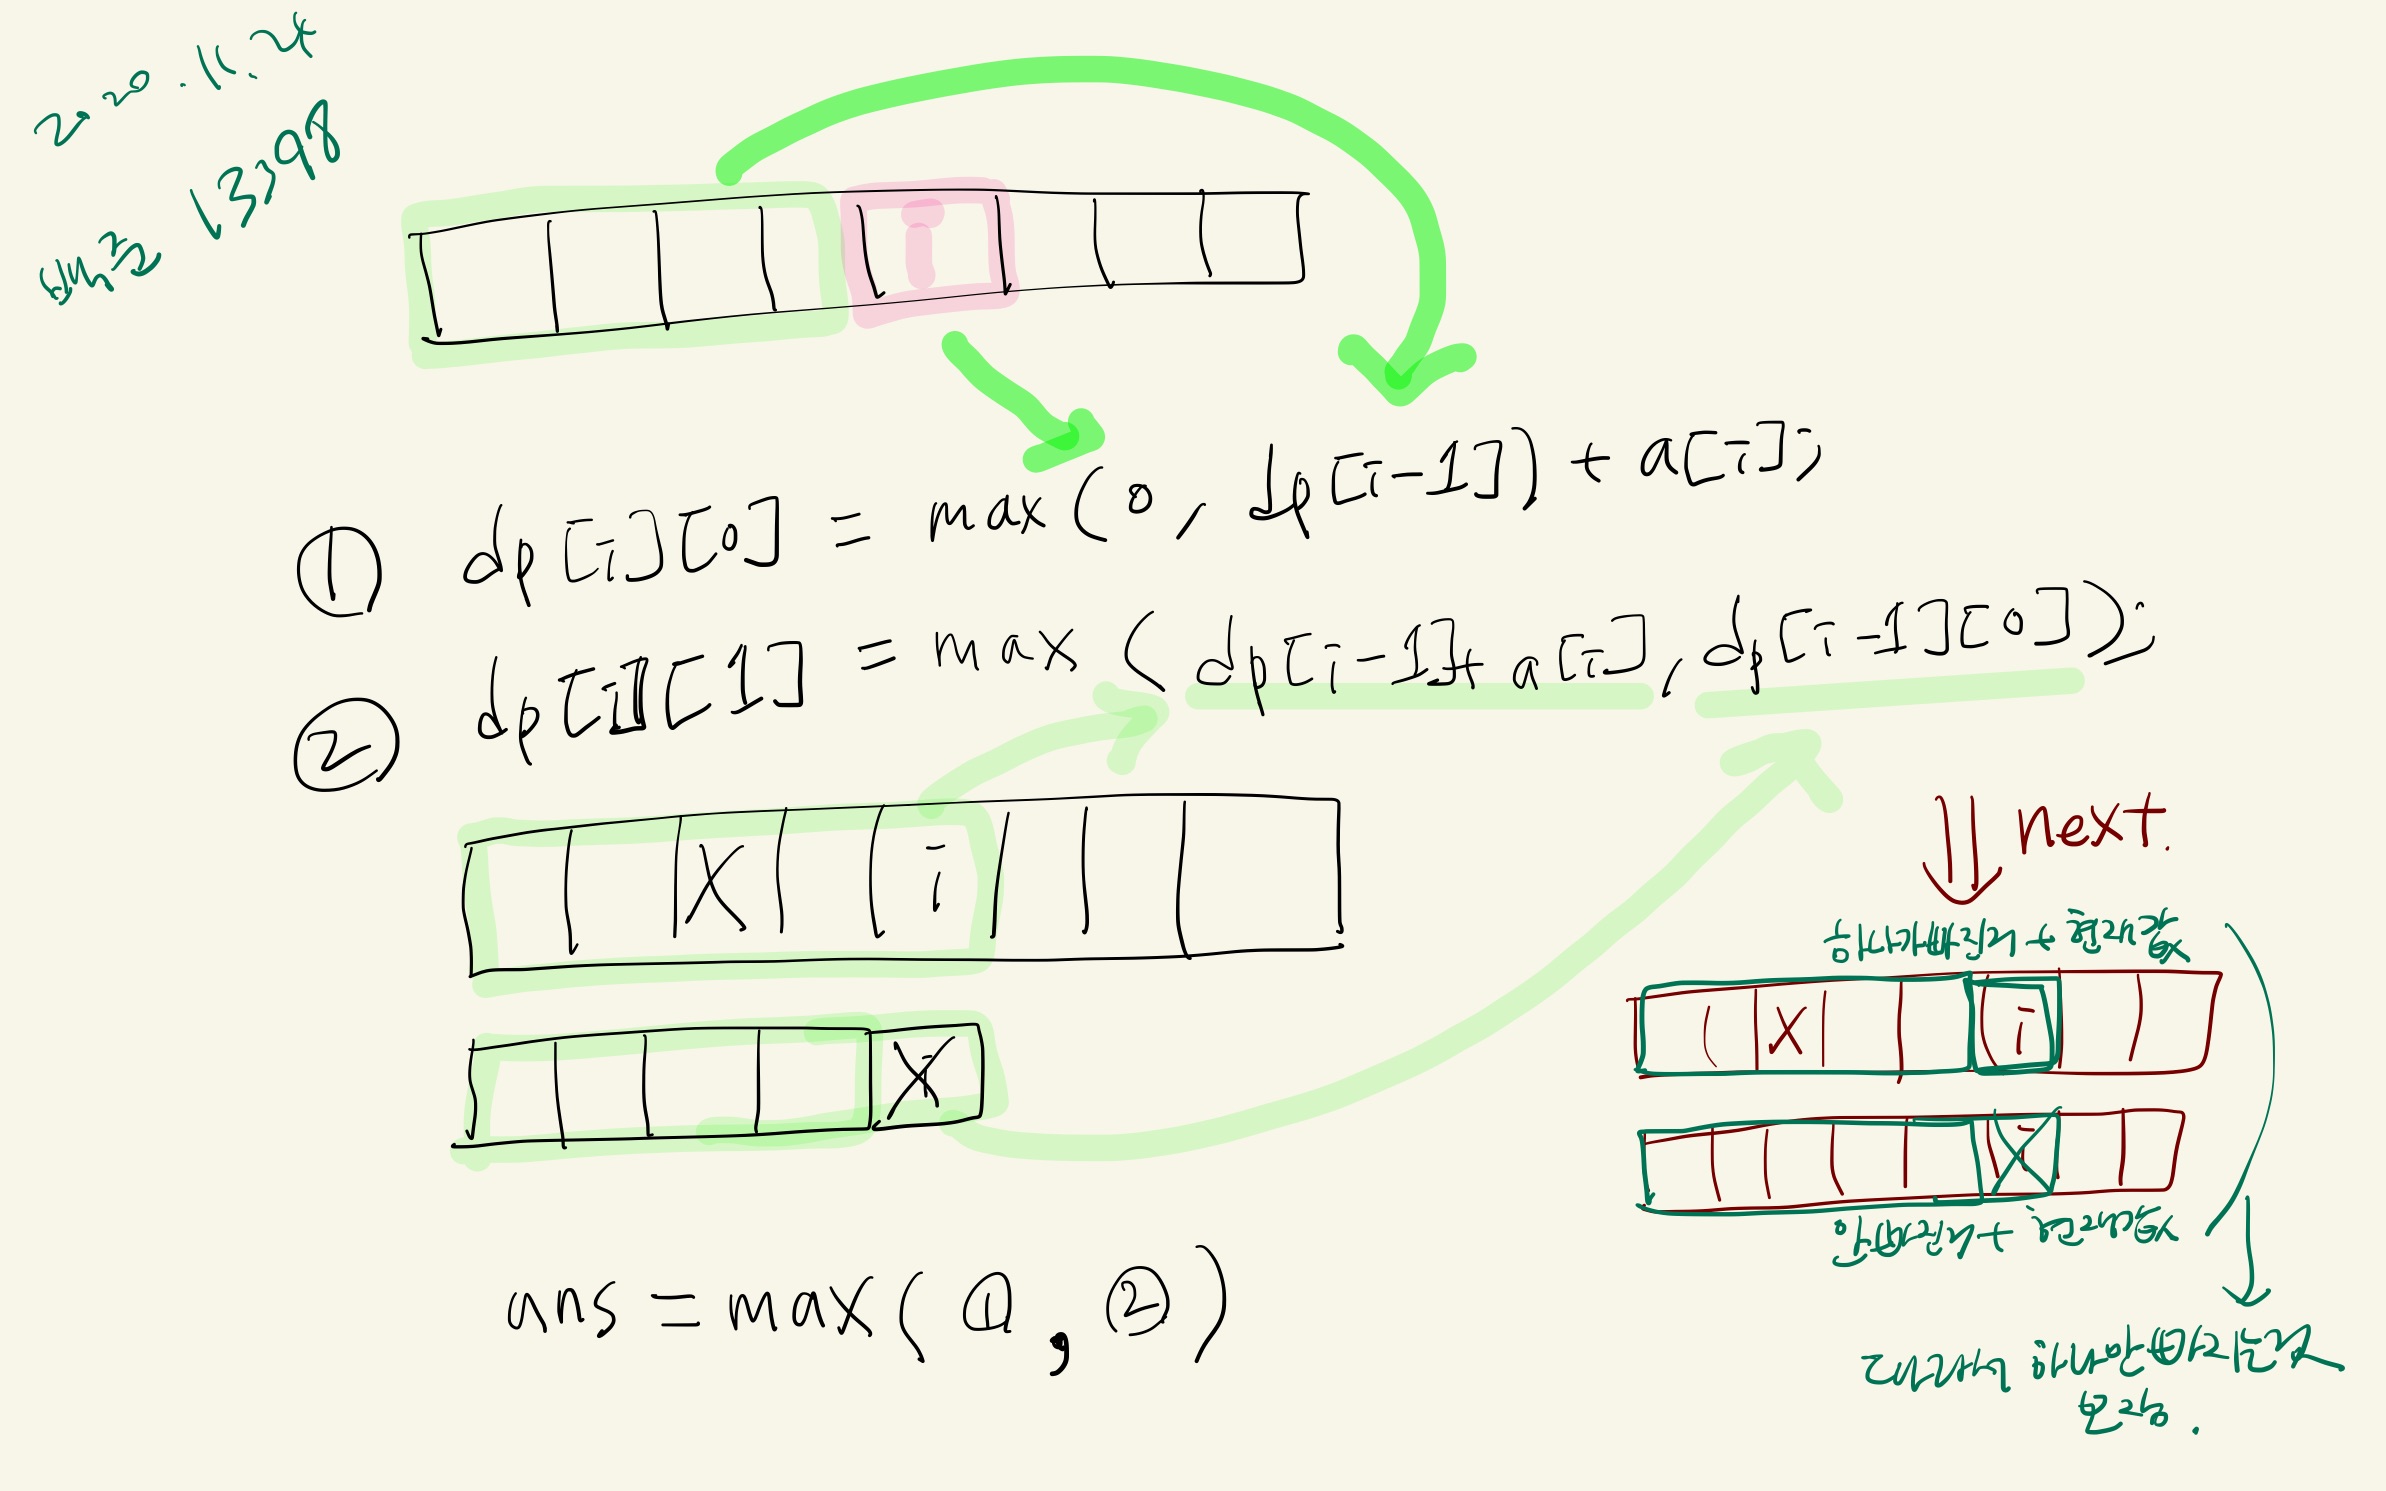 2020.11.24
백준 13398
i
① dp[i][0] = max(0, dp[i-1]) + a[i];
② dp[i][1] = max(dp[i-1]+ a[i], dp[i-1][0]);
X i
X i
ans = max(①, ②)
next.
하나가빠진거 + 현재값
X i
i X
안빠진거 + 현재값
그래서 하나만빠지는게
보장.